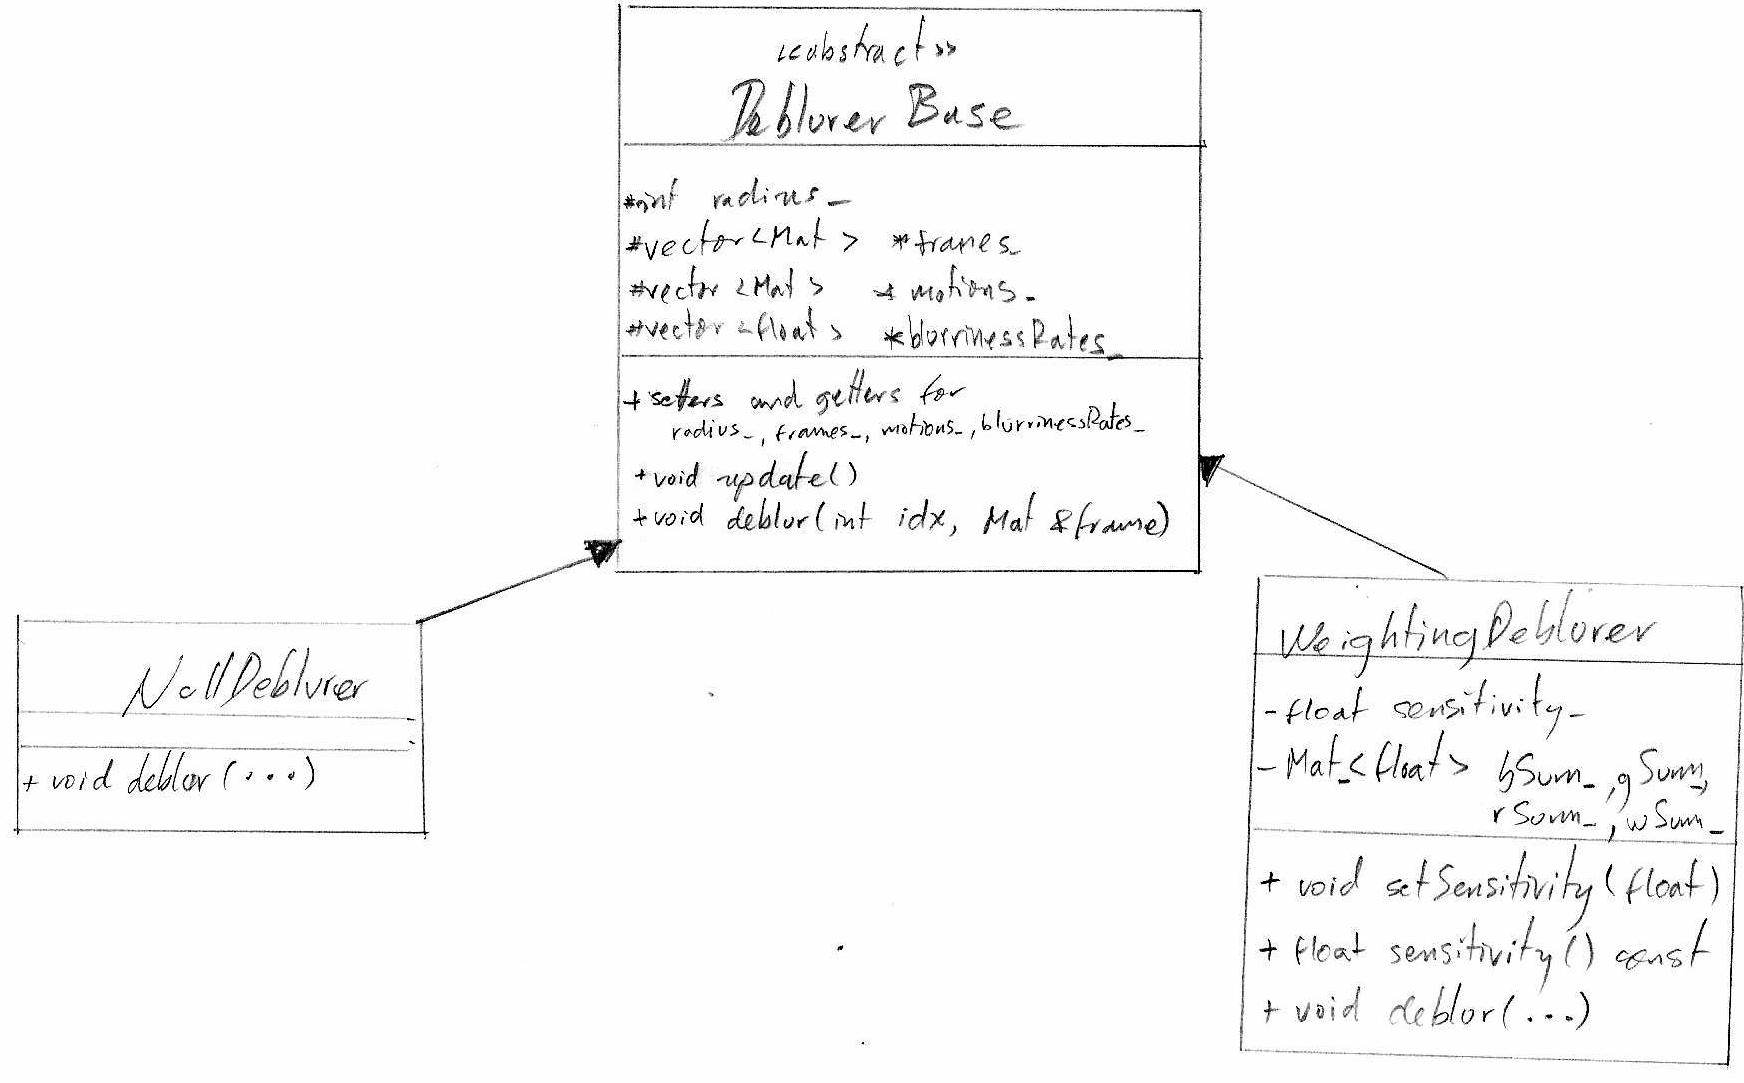 <<abstract>>
Deblurer Base
#int radius_
#vector<Mat> *frames_
#vector<Mat> *motions_
#vector<float> *blurrinessRates_
+ setters and getters for
radius_, frames_, motions_, blurrinessRates_
+void update()
+void deblur(int idx, Mat &frame)
NullDeblurer
+ void deblur(...)
WeightingDeblurer
- float sensitivity_
- Mat_<float> bSum_, gSum_,
rSum_, wSum_
+ void setSensitivity(float)
+ float sensitivity() const
+ void deblur(...)